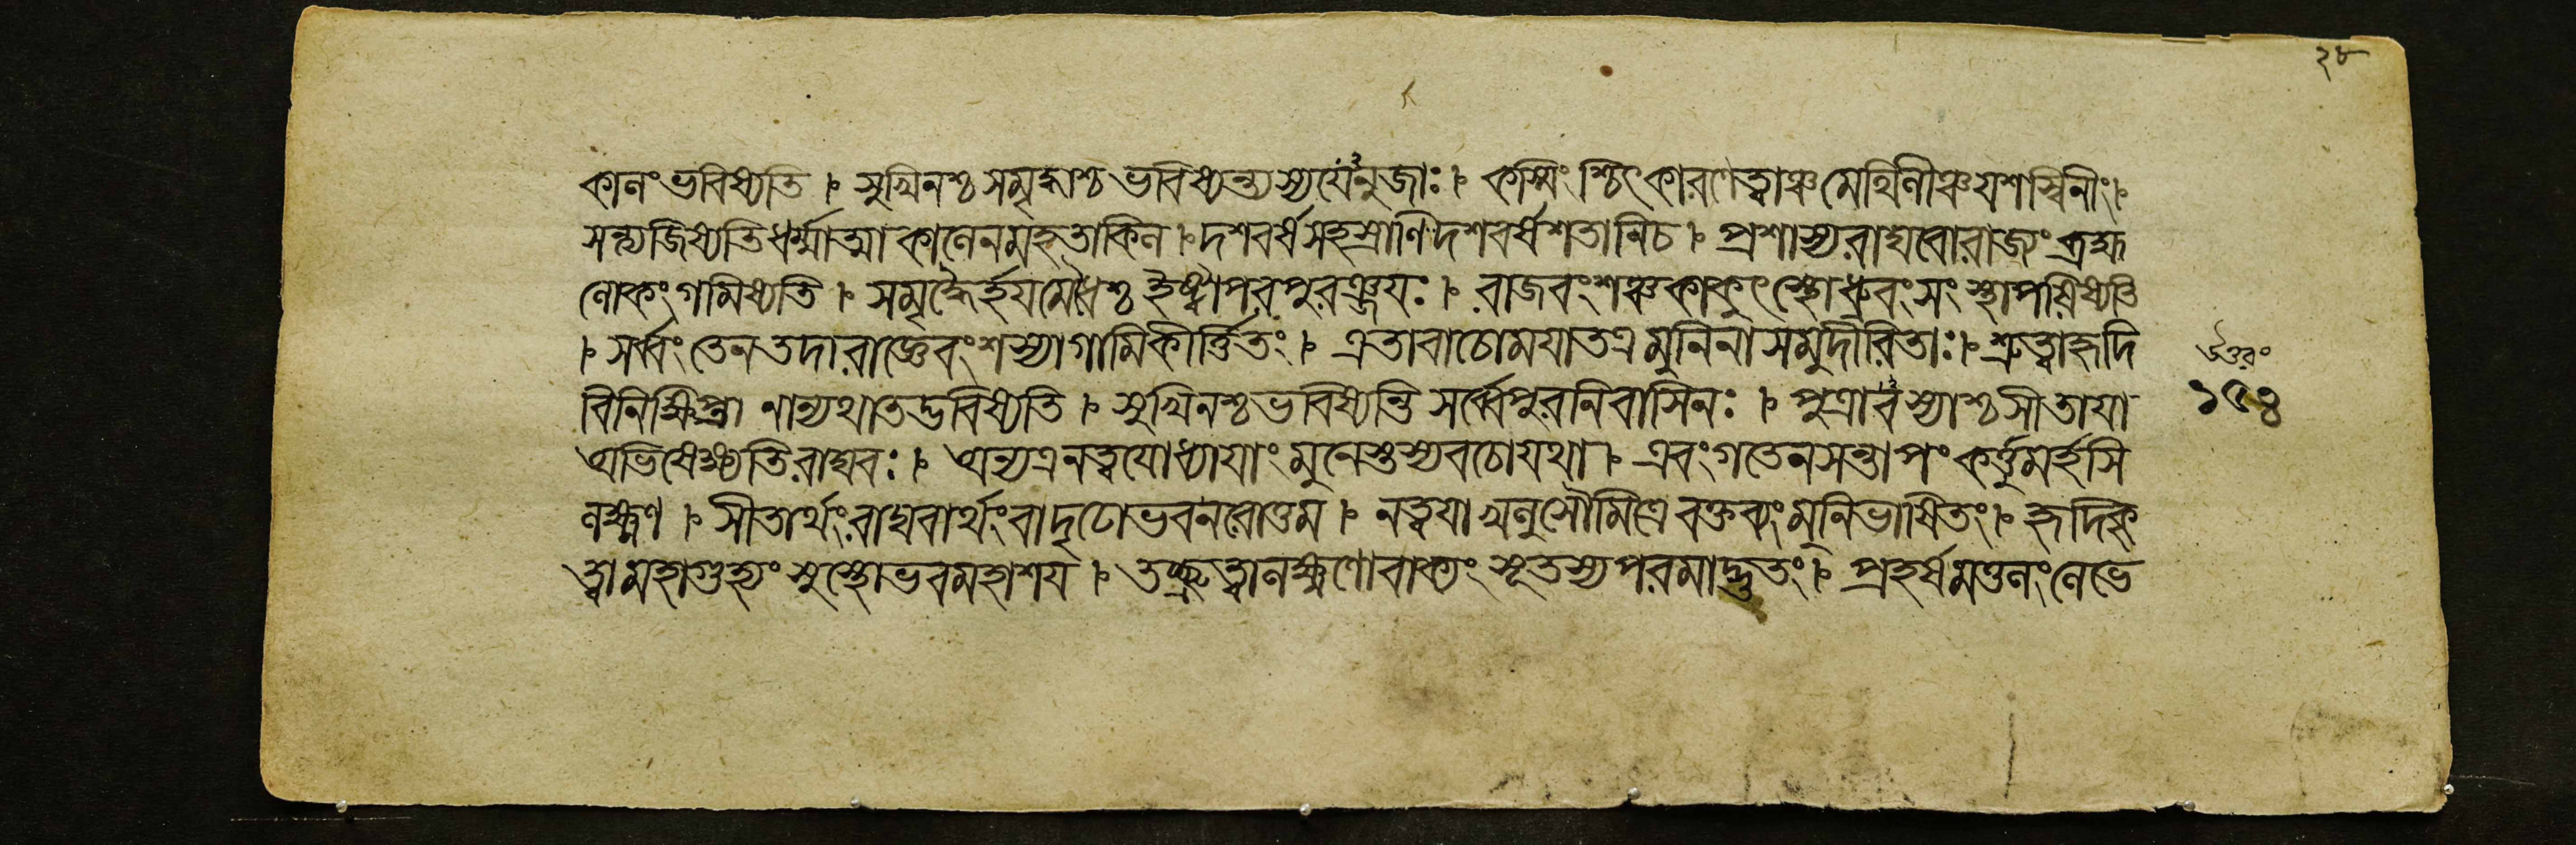 ২৮
কালং ভবিষ্যতি । সুখিনশ্চ সমৃদ্ধাশ্চ ভবিষ্যন্ত্যস্য যেঽনুজাঃ । কস্মিংশ্চিৎকারণে ত্বাঞ্চ মৈথিলীঞ্চ যশস্বিনীং ।
সন্ত্যজিষ্যতি ধর্ম্মাত্মা কালেন মহতা কিল । দশবর্ষসহস্রাণি দশবর্ষশতানি চ । প্রশাস্য রাঘবো রাজ্যং ব্রহ্ম
লোকং গমিষ্যতি । সমৃদ্ধৈর্হয়মেধৈশ্চ ইষ্ট্বা পরপুরঞ্জয়ঃ । রাজবংশঞ্চ কাকুৎস্থো ধ্রুবং সংস্থাপয়িষ্যতি
। সর্ব্বং তেন তদা রাজ্ঞে বংশস্যাগামি কীর্ত্তিতং । এতা বাচো ময়া তত্র মুনিনা সমুদীরিতাঃ । শ্রুত্বা হৃদি
বিনিক্ষিপ্তা নান্যথা তদ্ভবিষ্যতি । সুখিনশ্চ ভবিষ্যন্তি সর্ব্বে পুরনিবাসিনঃ । পুত্রাবস্যাশ্চ সীতায়া
অভিষেক্ষ্যতি রাঘবঃ । অন্যত্র ন ত্বযোধ্যায়াং মুনেস্তস্য বচো যথা । এবং গতে ন সন্তাপং কর্ত্তুমর্হসি
লক্ষ্মণ । সীতার্থং রাঘবার্থং বা দৃঢো ভব নরোত্তম । ন ত্বয়া খলু সৌমিত্রে বক্তব্যং মুনিভাষিতং । হৃদি কৃ
ত্বা মহাগুহ্যং সুস্থো ভব মহাশয় । তচ্ছ্রুত্বা লক্ষ্মণো বাক্যং সূতস্য পরমাদ্ভুতং । প্রহর্ষমতুলং লেভে
উত্তরং
১৫৪